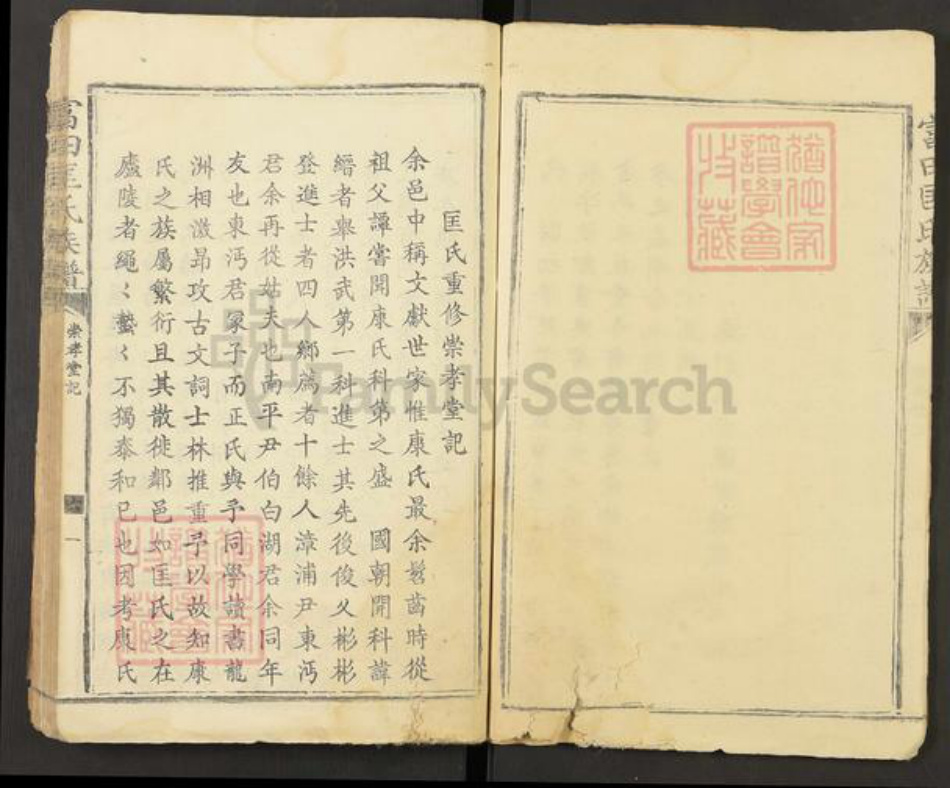 富田匡氏族譜
猶他家
譜學會
收藏
匡氏重修崇孝堂記
余邑中稱文獻世家惟康氏最余髫齒時從
祖父譚嘗聞康氏科第之盛　國朝開科諱
縉者舉洪武第一科進士其先後俊乂彬彬
登進士者四人鄉薦者十餘人漳浦尹東沔
君余再從姑夫也南平尹伯白湖君余同年
友也東沔君冢子而正氏與予同學讀書龍
洲相激昂攻古文詞士林推重予以故知康
氏之族屬繁衍且其散徙鄰邑如匡氏之在
廬陵者繩〻蟄〻不獨泰和已也因考康氏
富田匡氏族譜
崇孝堂記
一
猶他家
譜學會
收藏
FamilySearch